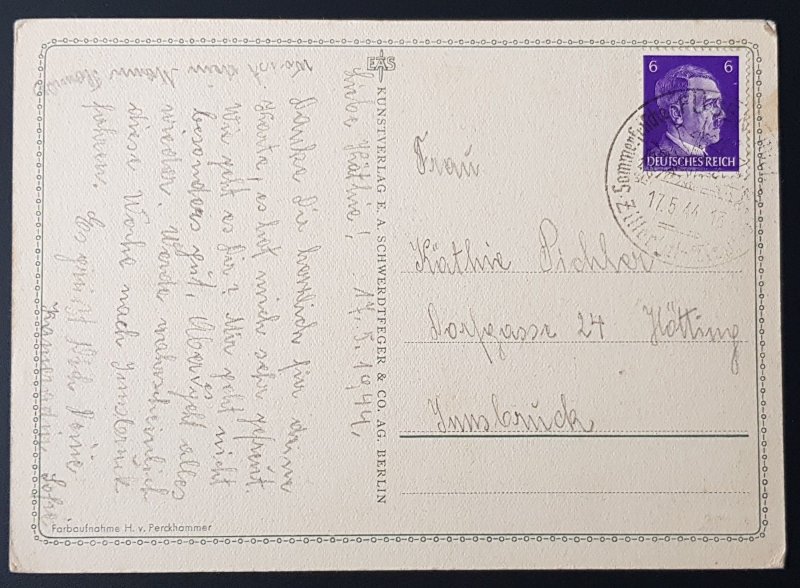 Liebe Käthie! 17.5.1944.
Danke Dir herzlich für deine
Karte, es hat mich sehr gefreut.
Wie geht es Dir? Mir geht nicht
besonders gut,
wieder. Werde wahrscheinlich
diese Woche nach Innsbruck
fahren. Es grüßt Dich
Kameradin
EAS
KUNSTVERLAG E. A. SCHWERDTFEGER & CO. AG. BERLIN
6 6
DEUTSCHES REICH
17.5.44
Frau
Käthie Pichler
Dorfgasse 24 Hötting
Innsbruck
Farbaufnahme H. v. Perckhammer